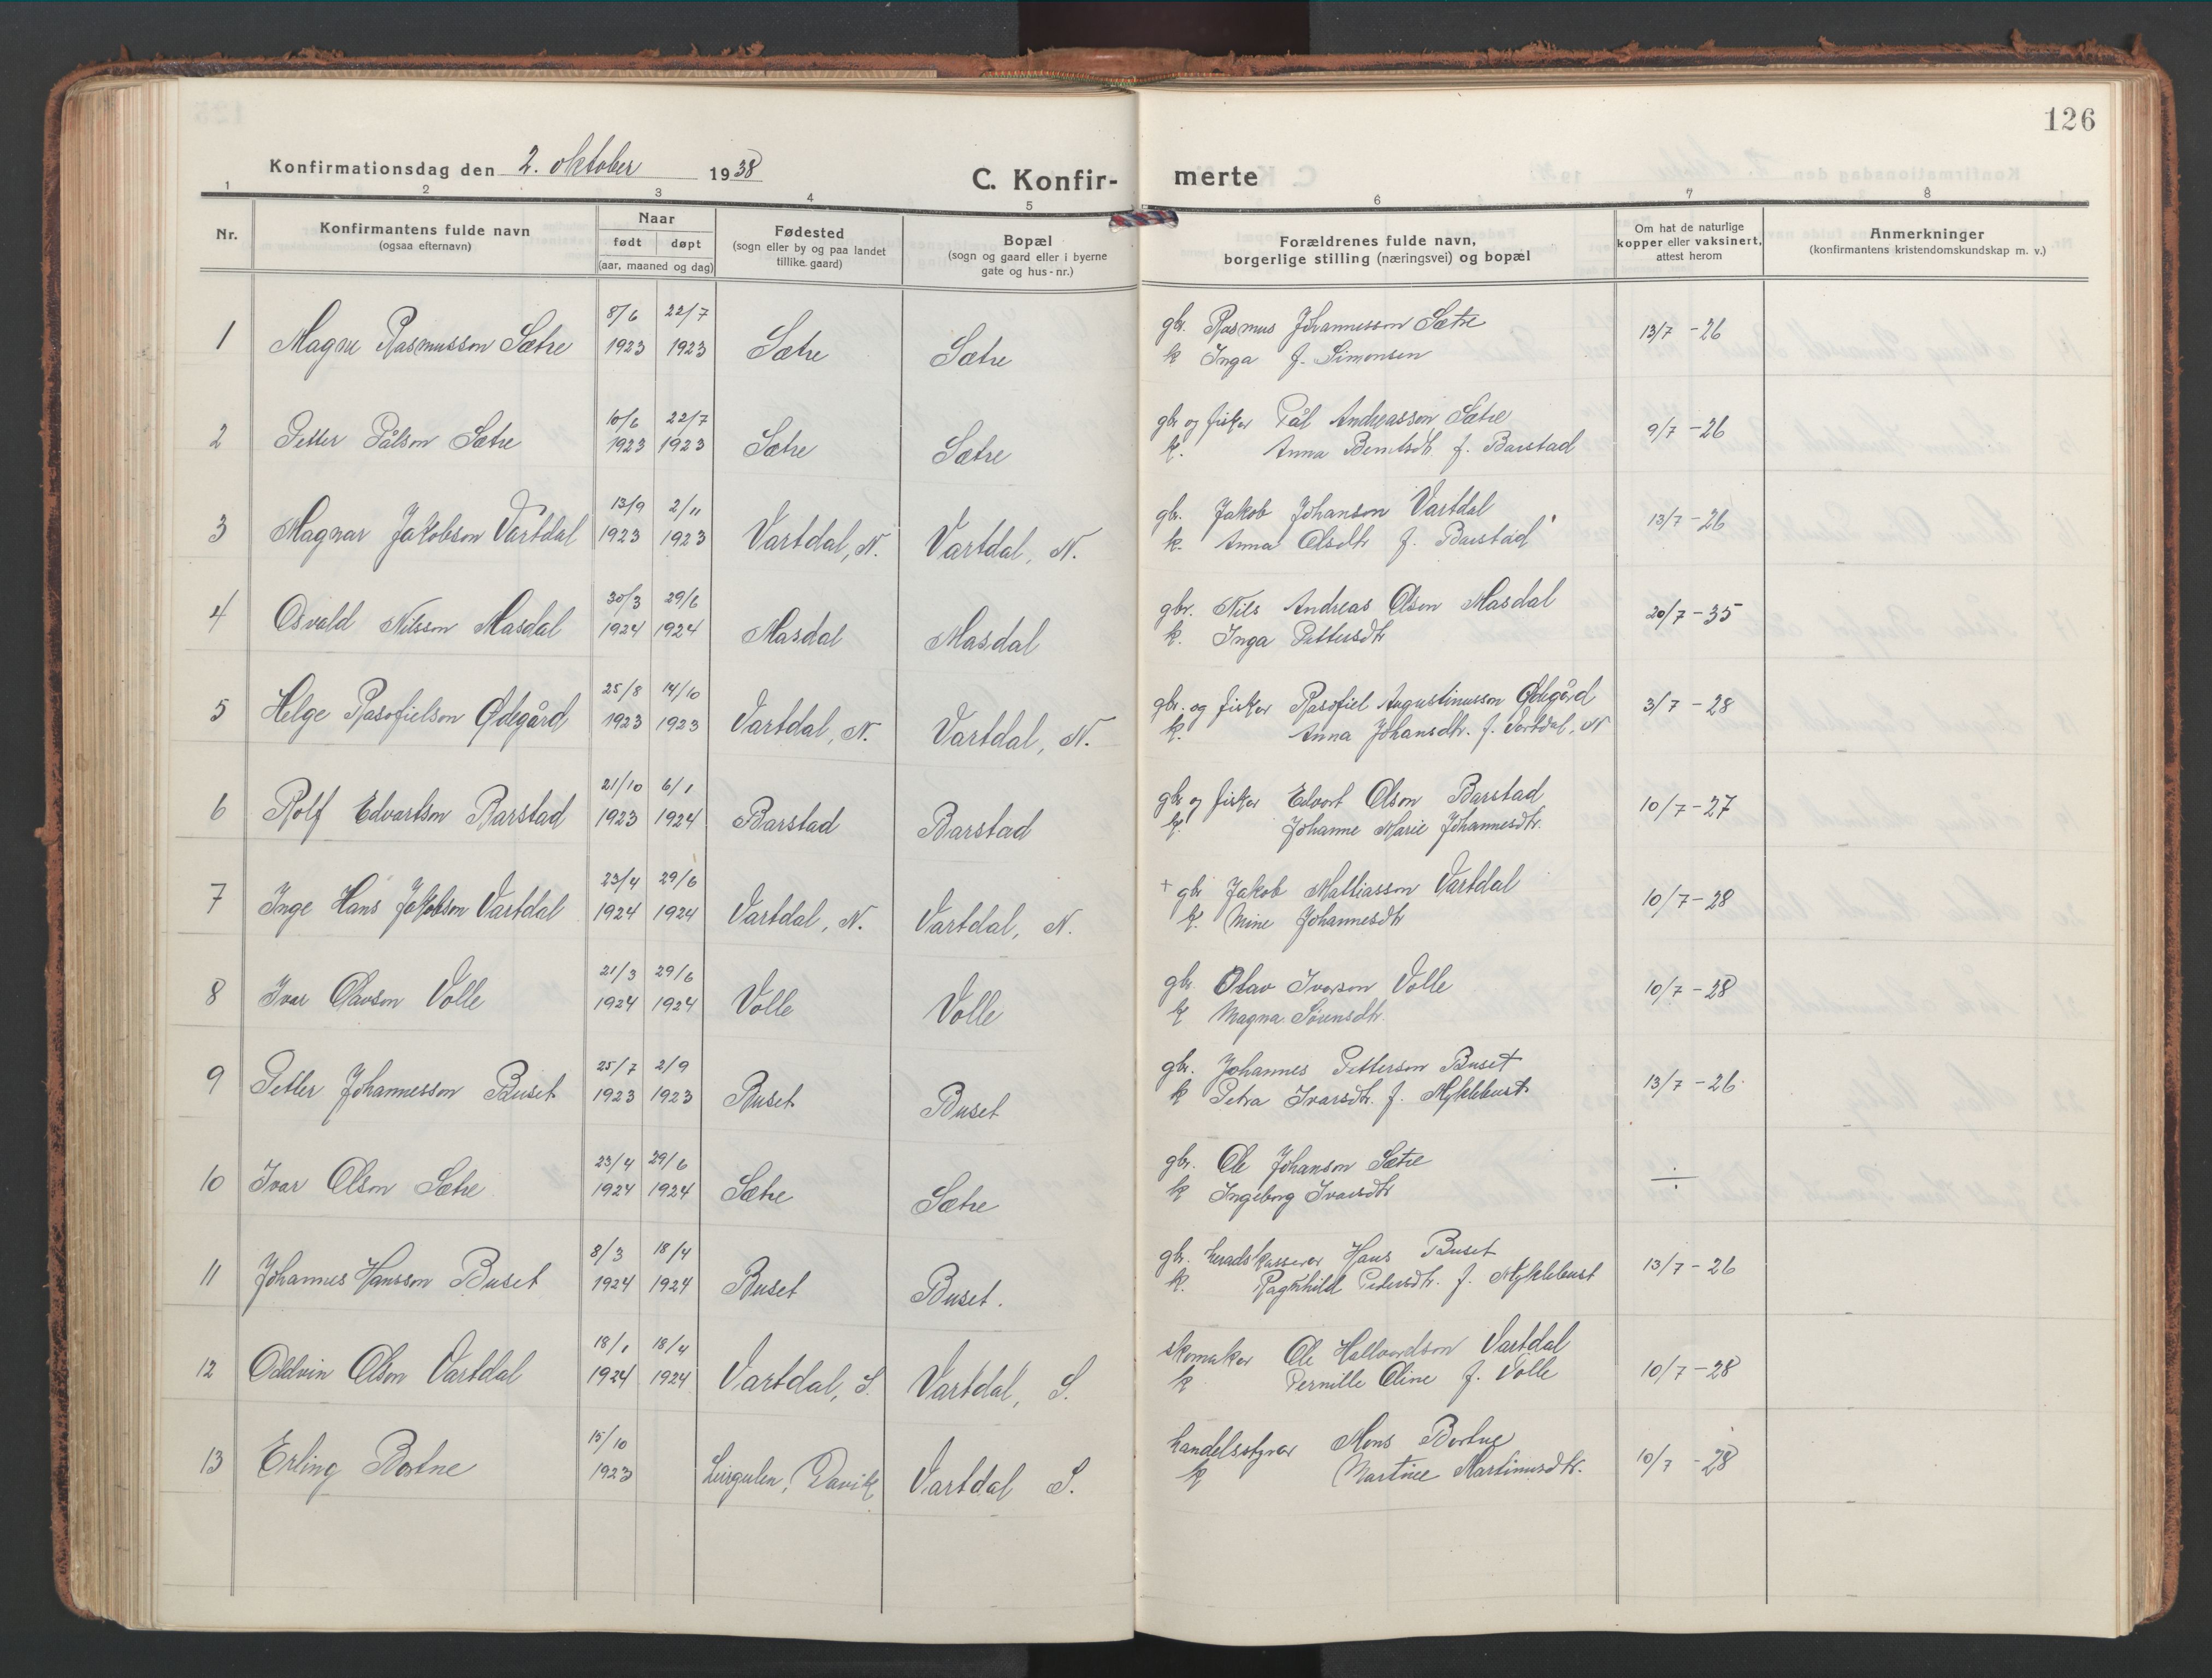 126
Konfirmationsdag den 2. oktober 1938
C. Konfir- merte
1 2 3 4 5 6 7 8
Nr. Konfirmantens fulde navn (ogsaa efternavn) Naar født døpt (aar, maaned og dag) Fødested (sogn eller by og paa landet tillike gaard) Bopæl (sogn og gaard eller i byerne gate og hus-nr.) Forældrenes fulde navn, borgerlige stilling (næringsvei) og bopæl Om hat de naturlige kopper eller vaksinert, attest herom Anmerkninger (konfirmantens kristendomskundskap m. v.)
1 Magne Rasmusson Sætre 8/6 1923 22/7 1923 Sætre Sætre gbr. Rasmus Johannesson Sætre 13/7 - 26
k Inga f. Simonsen
2 Petter Pålson Sætre 10/6 1923 22/7 1923 Sætre Sætre gbr og fisker Pål Andreasson Sætre 9/7 - 26
k. Anna Berntsdtr f. Barstad
3 Magnar Jakobson Vartdal 13/9 1923 2/11 1923 Vartdal, N. Vartdal, N. gbr. Jakob Johanson Vartdal 13/7 - 26
k. Anna Olsdtr f. Barstad
4 Osvald Nilsson Masdal 30/3 1924 29/6 1924 Masdal Masdal gbr. Nils Andreas Olson Masdal 20/7 - 35
k. Inga Pettersdtr
5 Helge Rasofielson Ødegård 25/8 1923 14/10 1923 Vartdal, N. Vartdal, N. gbr. og fisker Rasofiel Augustinusson Ødegård 3/7 - 28
k. Anna Johansdtr. f. Vartdal, N
6 Rolf Edvartson Barstad 21/10 1923 6/1 1924 Barstad Barstad gbr og fisker Edvart Olson Barstad 10/7 - 27
k. Johanne Marie Johannesdtr.
7 Inge Hans Jakobson Vartdal 23/4 1924 29/6 1924 Vartdal, N. Vartdal, N. + gbr Jakob Mattiasson Vartdal 10/7 - 28
k. Mine Johannesdtr
8 Ivar Olavson Volle 21/3 1924 29/6 1924 Volle Volle gbr. Olav Ivarson Volle 10/7 - 28
k Magna Sørensdtr.
9 Petter Johannesson Buset 25/7 1923 2/9 1923 Buset Buset gbr. Johannes Petterson Buset 13/7 - 26
k Petra Ivarsdtr. f. Myklebust
10 Ivar Olson Sætre 23/4 1924 29/6 1924 Sætre Sætre gbr. Ole Johanson Sætre ÷
k Ingeborg Ivarsdtr
11 Johannes Hansson Buset 8/3 1924 18/4 1924 Buset Buset. gbr. heradskasserer Hans Buset 13/7 - 26
k. Ragnhild Pedersdtr. f. Myklebust
12 Oddvin Olson Vartdal 18/1 1924 18/4 1924 Vartdal, S. Vartdal, S. skomaker Ole Hallvardson Vartdal 10/7 - 28
k Pernille Oline f. Volle
13 Erling Bortne 15/10 1923 Leirgulen, Davik Vartdal S. handelsstyrer Mons Bortne 10/7 - 28
k Martine Martinusdtr.